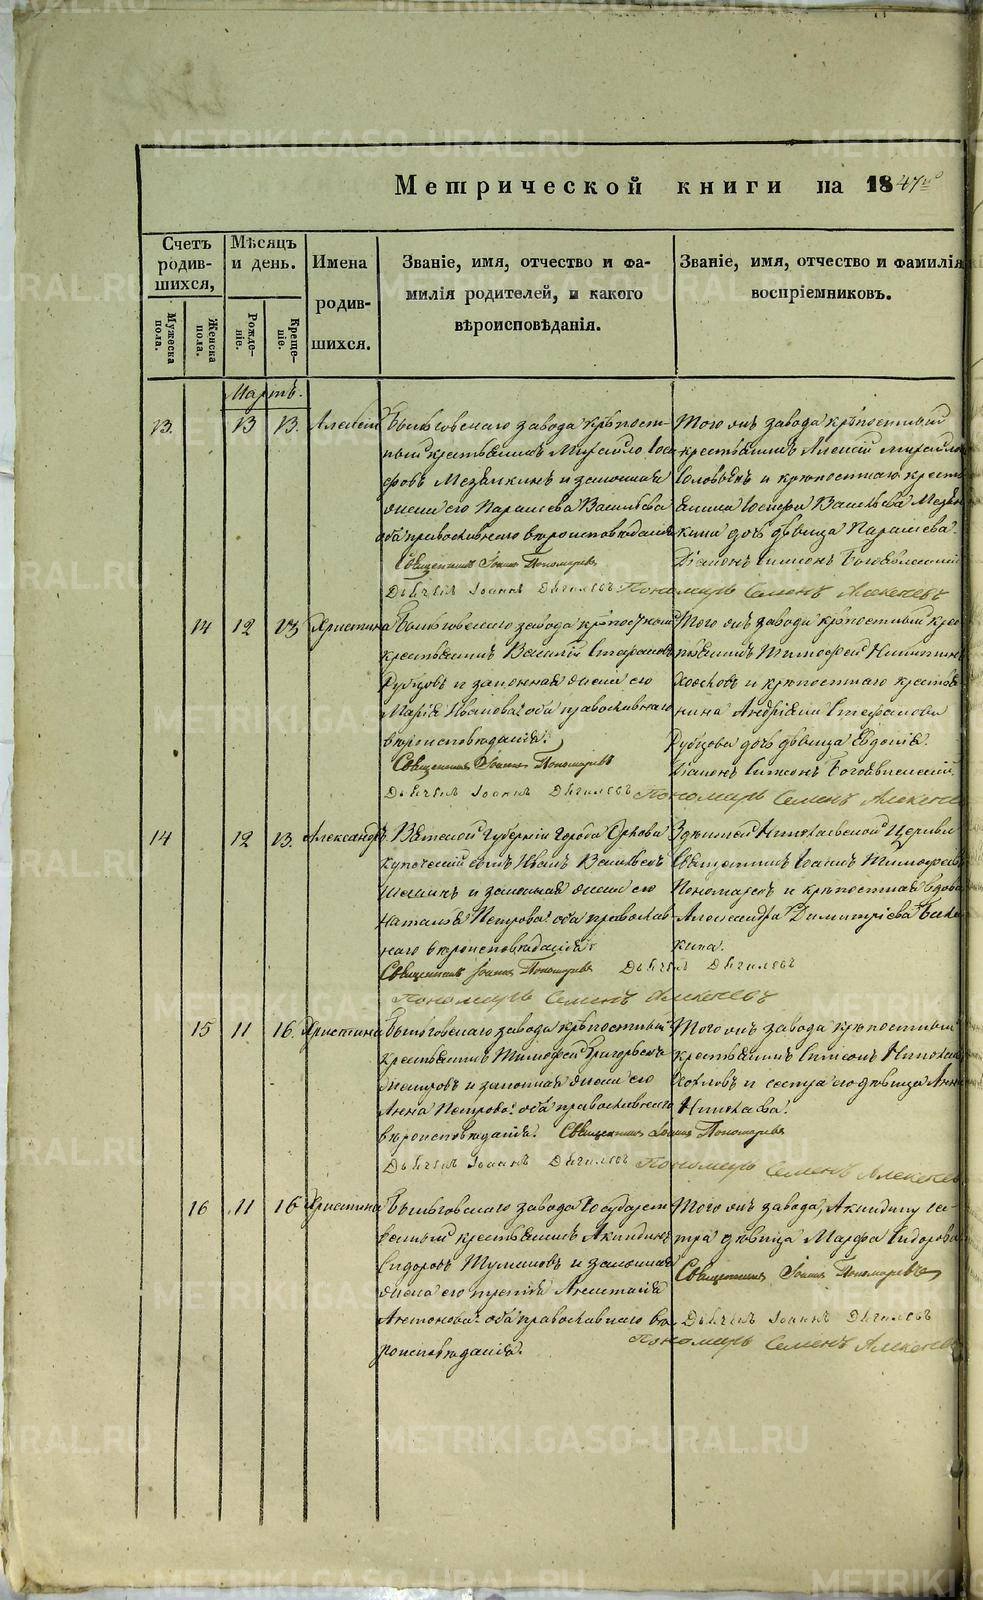 METRIKI.GASO-URAL.RU
Метрической книги на 1847й
Счетъ родив-шихся,
Мужеска пола.
Женска пола.
Мѣсяцъ и день.
Рожде-ніе.
Креще-ніе.
Имена родив-шихся.
Званіе, имя, отчество и фа-
милія родителей, и какого
вѣроисповѣданія.
Званіе, имя, отчество и фамилія
воспріемниковъ.
Мартъ.
13. 13 13. Алексій
заводa крѣпост-
ный крестьянинъ Михайло Іоси
фовъ Мезенкинъ и законная
жена его Параскева Васильева
оба православнаго вѣроисповѣданія
Священникъ Іоаннъ Пономаревъ
Того жъ завода крѣпостный
крестьянинъ Алексій Михайлов
Соловьевъ и крѣпостнаго кресть
янина Іосифа Васильева Мезен
кина дочь дѣвица Параскева.
Діаконъ Симеонъ Богоявленскій
Дьячекъ Іоаннъ Дягилевъ Пономарь Семенъ Алексѣевъ
14 12 13 Христина
завода крѣпостный
крестьянинъ Василій Стефановъ
Рубцовъ и законная жена его
Марія Иванова оба православнаго
вѣроисповѣданія.
Священникъ Іоаннъ Пономаревъ
Того жъ завода крѣпостный кре
стьянинъ Тимофей Никитинъ
и крѣпостнаго крестья
нина Андрія Стефанова
Рубцова дочь дѣвица Евдокія.
Діаконъ Симеонъ Богоявленскій
Дьячекъ Іоаннъ Дягилевъ Пономарь Семенъ Алексѣев
14 12 13. Александръ.
Вятской Губерніи города Орлова
купеческій сынъ Иванъ Васильевъ
и законная жена его
Наталья Петрова оба православ
наго вѣроисповѣданія
Здѣшней Николаевской Церкви
Священникъ Іоаннъ Тимофеевъ
Пономаревъ и крѣпостная вдова
Александра Димитріева
кина.
Священникъ Іоаннъ Пономаревъ Дьячекъ Дягилевъ
Пономарь Семенъ Алексѣевъ
15 11 16. Христина
завода крѣпостный
крестьянинъ Тимофей Григорьевъ
и законная жена его
Анна Петрова оба православнаго
вѣроисповѣданія. Священникъ Іоаннъ Пономаревъ
Того жъ завода крѣпостный
крестьянинъ Симеонъ Николаев
Хохловъ и сестра его дѣвица Анна
Николаева.
Дьячекъ Іоаннъ Дягилевъ Пономарь Семенъ Алексѣев
16 11 16 Христина
завода Государст
венный крестьянинъ Акиндинъ
Сидоровъ Тумановъ и законная
жена его Анастасія
Антонова оба православнаго вѣ
роисповѣданія.
Того жъ завода, Акиндину се-
стра дѣвица Марфа Сидорова
Священникъ Іоаннъ Пономаревъ
Дьячекъ Іоаннъ Дягилевъ
Пономарь Семенъ Алексѣев